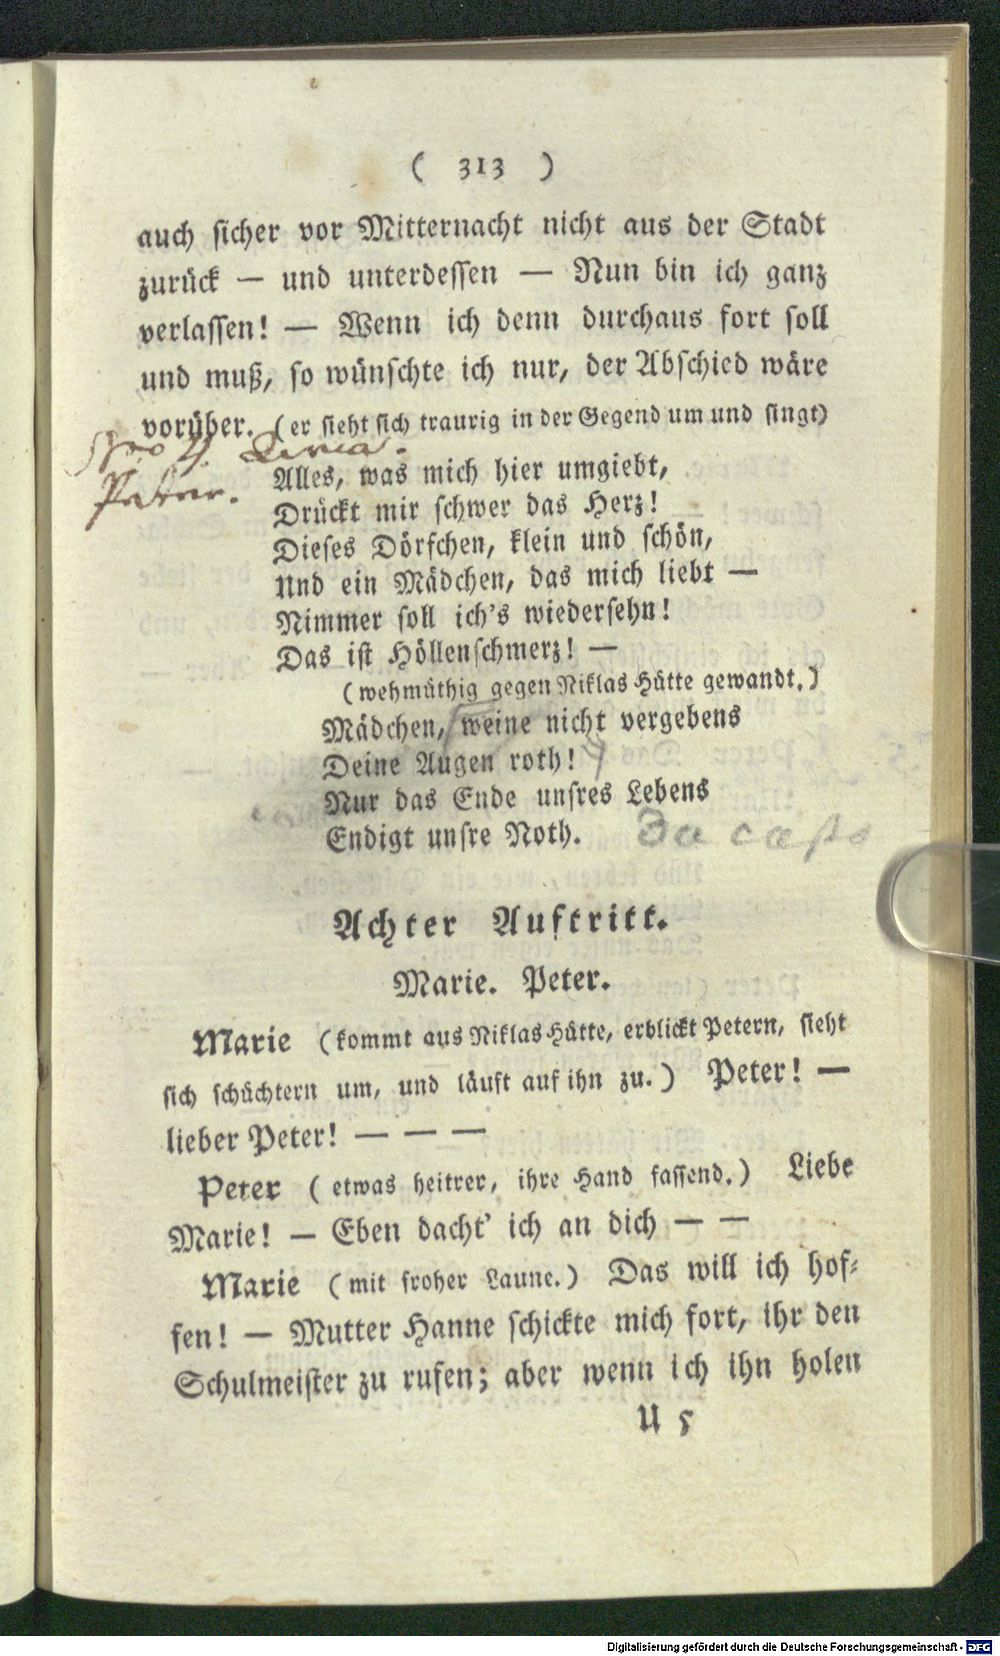 ( 313 )
auch sicher vor Mitternacht nicht aus der Stadt
zurück — und unterdessen — Nun bin ich ganz
verlassen! — Wenn ich denn durchaus fort soll
und muß, so wünschte ich nur, der Abschied wäre
vorüber. (er sieht sich traurig in der Gegend um und singt)
Peter.
Alles, was mich hier umgiebt,
Drückt mir schwer das Herz!
Dieses Dörfchen, klein und schön,
Und ein Mädchen, das mich liebt —
Nimmer soll ich's wiedersehn!
Das ist Höllenschmerz! —
(wehmüthig gegen Niklas Hütte gewandt.)
Mädchen, weine nicht vergebens
Deine Augen roth!
Nur das Ende unsres Lebens
Endigt unsre Noth.
Da capo
Achter Auftritt.
Marie. Peter.
Marie (kommt aus Niklas Hütte, erblickt Petern, sieht
sich schüchtern um, und läuft auf ihn zu.) Peter! —
lieber Peter! — — —
Peter (etwas heitrer, ihre Hand fassend.) Liebe
Marie! — Eben dacht' ich an dich — —
Marie (mit froher Laune.) Das will ich hof-
fen! — Mutter Hanne schickte mich fort, ihr den
Schulmeister zu rufen; aber wenn ich ihn holen
U 5
Digitalisierung gefördert durch die Deutsche Forschungsgemeinschaft - DFG